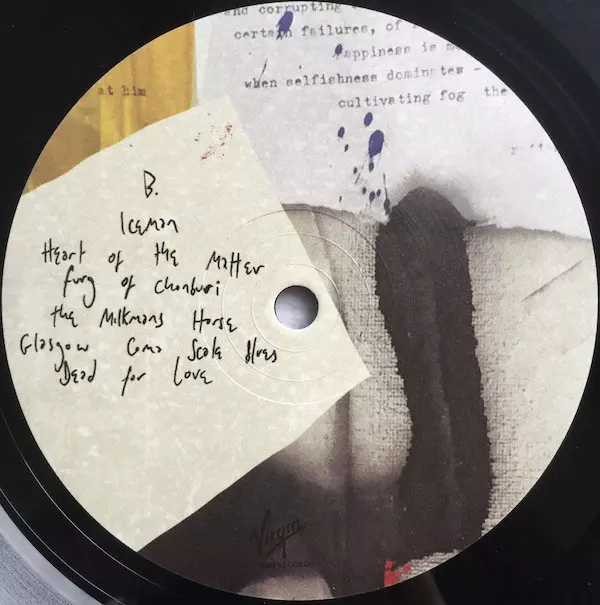 and corrupting
certain failures, of
appiness is m
when selfishness dominates -
cultivating fog the
at him
B.
Iceman
Heart of the Matter
fury of chonburi
the Milkmans Horse
Glasgow Coma Scale Blues
Dead for Love
Virgin